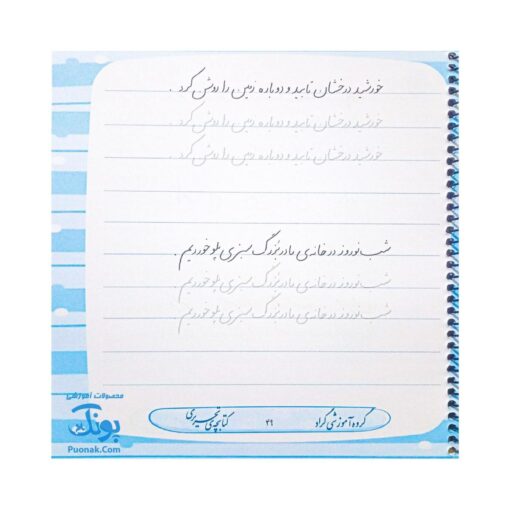 خورشید درخشان تابید و دوباره زمین را روشن کرد .
خورشید درخشان تابید و دوباره زمین را روشن کرد .
خورشید درخشان تابید و دوباره زمین را روشن کرد .
شب نوروز در خانه‌ی مادربزرگ سبزی پلو خوردیم .
شب نوروز در خانه‌ی مادربزرگ سبزی پلو خوردیم .
شب نوروز در خانه‌ی مادربزرگ سبزی پلو خوردیم .
گروه آموزشی کراد ۴۶ کتابچه‌ی تحریری
محصولات آموزشی
پونک
Puonak.Com